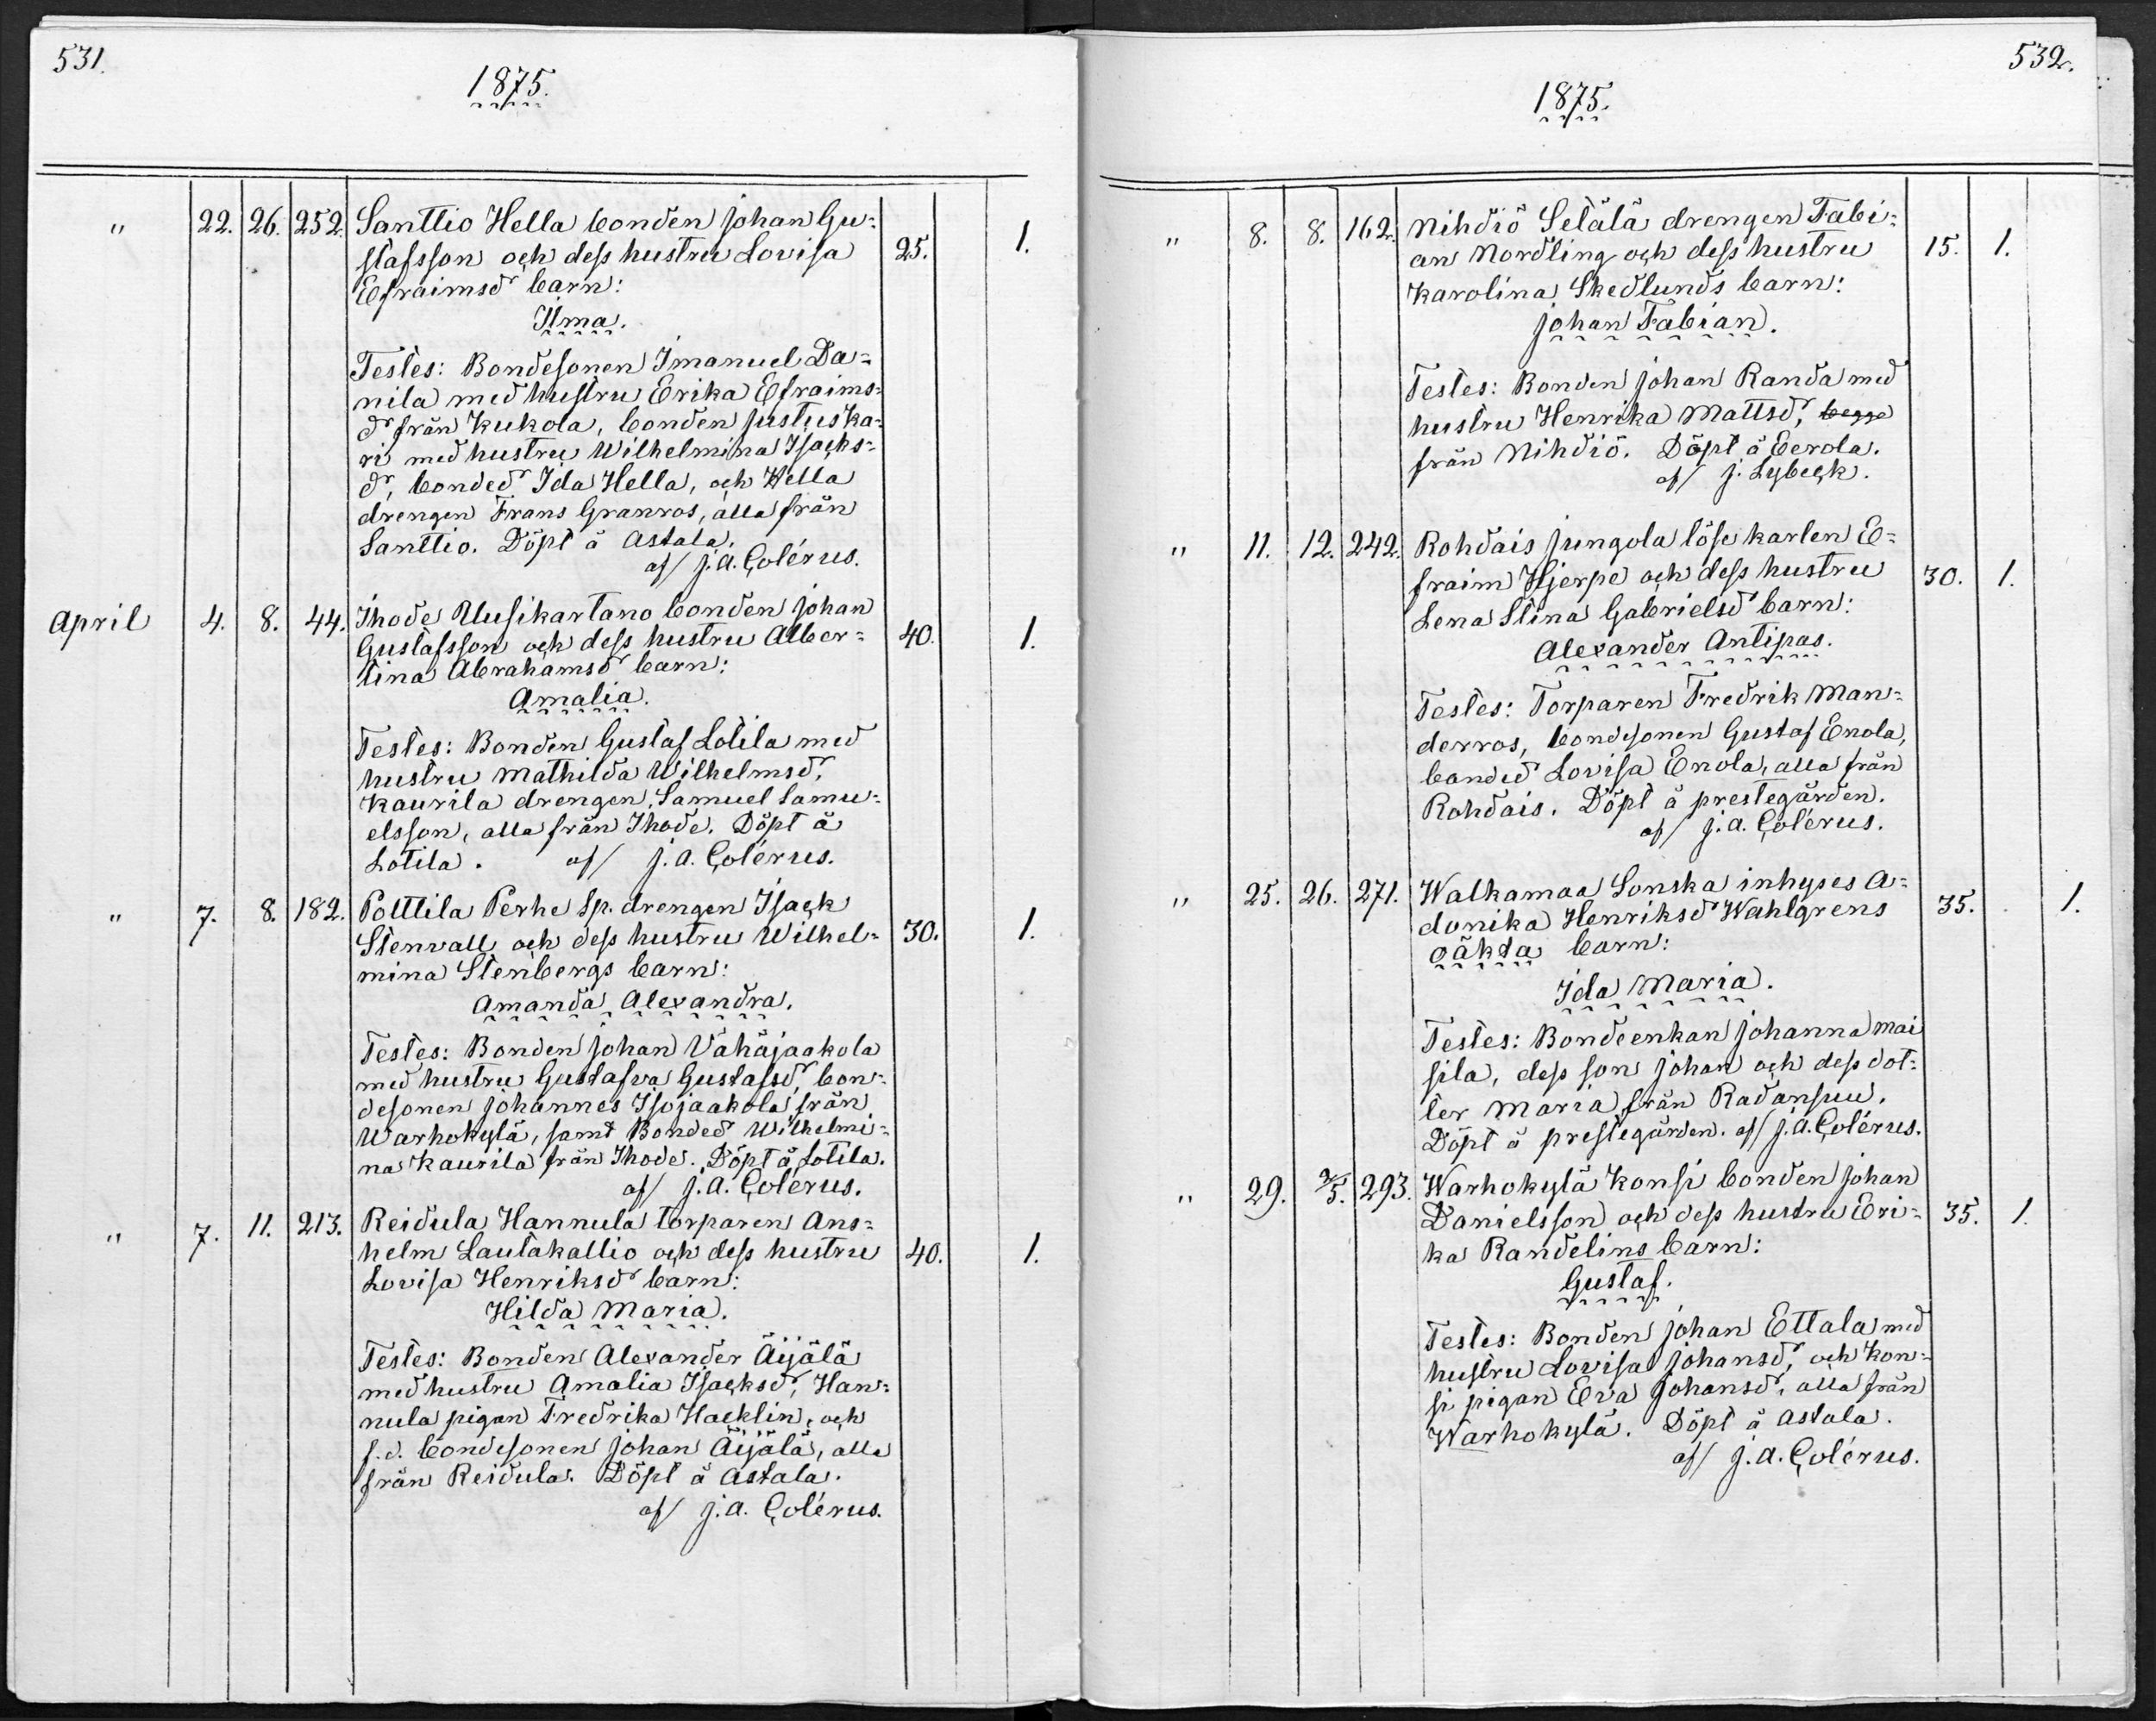 531.
1875.
" 22. 26. 252. Santtio Hella bonden Johan Gu=
stafsson och dess hustru Lovisa 25. 1.
Efraimsdr barn:
Ilma.
Testes: Bondesonen Imanuel Da=
nila med hustru Erika Efraims=
dr från Kukola, bonden Justus Ka=
ri med hustru Wilhelmina Isacks=
dr, bondedr Ida Hella, och Hella
drengen Frans Granros, alla från
Santtio. Döpt å Astala.
af J. A. Colérus.
April 4. 8. 44. Ihode Uusikartano bonden Johan
Gustafsson och dess hustru Alber= 40. 1.
tina Abrahamsdr barn:
Amalia.
Testes: Bonden Gustaf Lotila med
hustru Mathilda Wilhelmsdr,
Kaurila drengen Samuel Samu=
elsson, alla från Ihode. Döpt å
Lotila. af J. A. Colérus.
" 7. 8. 182. Polttila Perhe Sp. drengen Isack
Stenvall och dess hustru Wilhel= 30. 1.
mina Stenbergs barn:
Amanda Alexandra.
Testes: Bonden Johan Vähäjaakola
med hustru Gustafva Gustafsdr, bon=
desonen Johannes Isojaakola från
Warhokylä, samt Bondedr Wilhelmi=
na Kaurila från Ihode. Döpt å Lotila.
af J. A. Colérus.
" 7. 11. 213. Reidula Hannula torparen Ans=
helm Lautakallio och dess hustru 40. 1.
Lovisa Henriksdr barn:
Hilda Maria.
Testes: Bonden Alexander Äijälä
med hustru Amalia Isacksdr, Han=
nula pigan Fredrika Hacklin, och
f.d. bondesonen Johan Äijälä, alla
från Reidula. Döpt å Astala.
af J. A. Colérus.
532.
1875.
" 8. 8. 162. Nihdiö Selälä drengen Fabi=
an Nordling och dess hustru 15. 1.
Karolina Skedlunds barn:
Johan Fabian.
Testes: Bonden Johan Randa med
hustru Henrika Mattsdr, begge
från Nihdiö. Döpt å Eerola.
af J. Lybeck.
" 11. 12. 242. Rohdais Jungola löse karlen E=
fraim Hjerpe och dess hustru 30. 1.
Lena Stina Gabrielsdr barn:
Alexander Antipas.
Testes: Torparen Fredrik Man=
derros, bondesonen Gustaf Enola,
bondedr Lovisa Enola, alla från
Rohdais. Döpt å prestegården.
af J. A. Colérus.
" 25. 26. 271. Walkamaa Sonska inhyses A=
donika Henriksdr Wahlgrens 35. 1.
oäkta barn:
Ida Maria.
Testes: Bondeenkan Johanna Mai
sila, dess son Johan och dess dot=
ter Maria från Radansuu.
Döpt å prestegården. af J. A. Colérus.
" 29. 2/5. 293. Warhokylä Konsi bonden Johan
Danielsson och dess hustru Eri= 35. 1.
ka Randelins barn:
Gustaf.
Testes: Bonden Johan Ettala med
hustru Lovisa Johansdr, och Kon=
si pigan Eva Johansdr, alla från
Warhokylä. Döpt å Astala.
af J. A. Colérus.